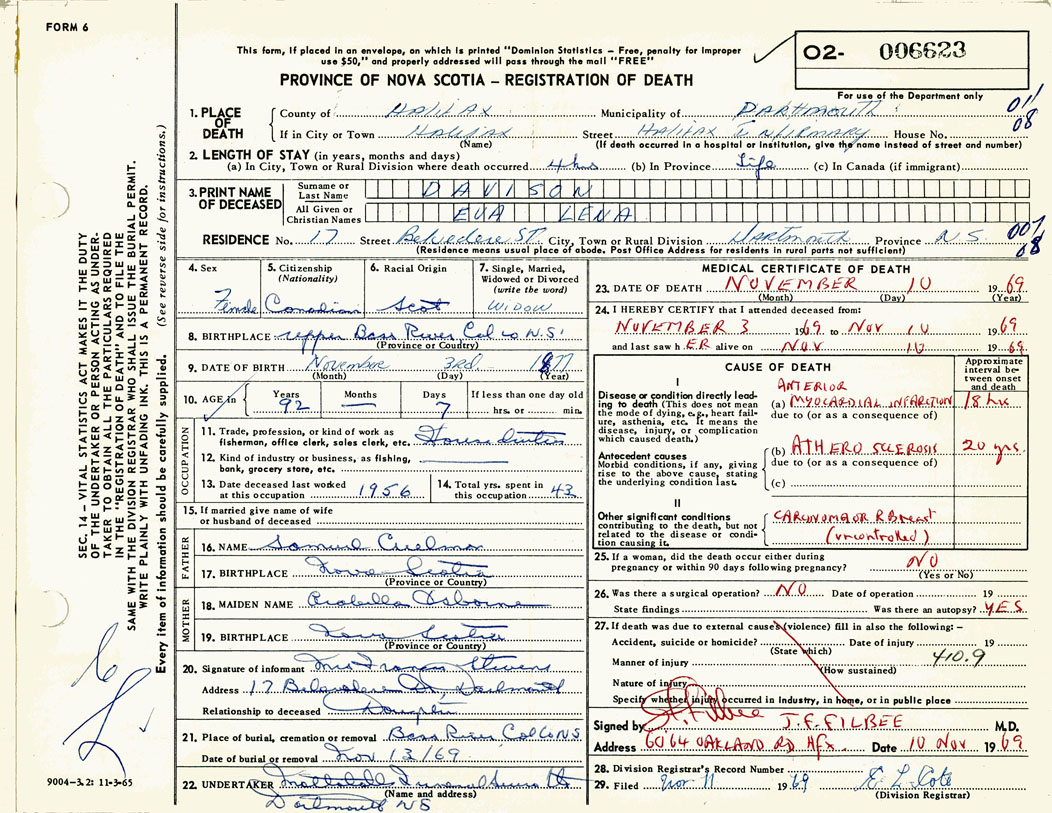 FORM 6
This form, if placed in an envelope, on which is printed "Dominion Statistics – Free, penalty for improper
use $50," and properly addressed will pass through the mail "FREE"
O2- 006623
PROVINCE OF NOVA SCOTIA – REGISTRATION OF DEATH
For use of the Department only
1. PLACE OF DEATH
County of HALIFAX Municipality of DARTMOUTH 011
If in City or Town HALIFAX Street HALIFAX INFIRMARY House No. 08
(Name) (If death occurred in a hospital or institution, give the name instead of street and number)
2. LENGTH OF STAY (in years, months and days)
(a) In City, Town or Rural Division where death occurred 4 hrs (b) In Province Life (c) In Canada (if immigrant)
3. PRINT NAME OF DECEASED
Surname or Last Name DAVISON
All Given or Christian Names EVA LENA
RESIDENCE No. 17 Street Belvedere ST. City, Town or Rural Division Dartmouth Province N.S. 007 08
(Residence means usual place of abode. Post Office Address for residents in rural parts not sufficient)
4. Sex
Female
5. Citizenship (Nationality)
Canadian
6. Racial Origin
Scot
7. Single, Married, Widowed or Divorced (write the word)
WIDOW
8. BIRTHPLACE Upper Bass River Col Co N.S.
(Province or Country)
9. DATE OF BIRTH November 3rd 1877
(Month) (Day) (Year)
10. AGE in Years Months Days If less than one day old
92 — 7 hrs. or min.
OCCUPATION
11. Trade, profession, or kind of work as
fisherman, office clerk, sales clerk, etc. House duties
12. Kind of industry or business, as fishing,
bank, grocery store, etc.
13. Date deceased last worked
at this occupation 1956
14. Total yrs. spent in
this occupation 43
15. If married give name of wife
or husband of deceased
FATHER
16. NAME Samuel
17. BIRTHPLACE Nova Scotia
(Province or Country)
MOTHER
18. MAIDEN NAME Osborne
19. BIRTHPLACE Nova Scotia
(Province or Country)
20. Signature of informant Mrs Frances Stevens
Address 17 Belvedere St, Dartmouth
Relationship to deceased Daughter
21. Place of burial, cremation or removal Bass River Col Co N.S.
Date of burial or removal Nov 13/69
22. UNDERTAKER Funeral
(Name and address)
Dartmouth NS
MEDICAL CERTIFICATE OF DEATH
23. DATE OF DEATH NOVEMBER 10 1969
(Month) (Day) (Year)
24. I HEREBY CERTIFY that I attended deceased from:
NOVEMBER 3 1969 to NOV 10 1969
and last saw h ER alive on NOV 10 1969
CAUSE OF DEATH
Approximate interval between onset and death
I
Disease or condition directly leading to death (This does not mean the mode of dying, e.g., heart failure, asthenia, etc. It means the disease, injury, or complication which caused death.)
ANTERIOR
(a) MYOCARDIAL INFARCTION 18 hrs
due to (or as a consequence of)
Antecedent causes
Morbid conditions, if any, giving rise to the above cause, stating the underlying condition last.
(b) ATHEROSCLEROSIS 20 yrs.
due to (or as a consequence of)
(c)
II
Other significant conditions
contributing to the death, but not related to the disease or condition causing it.
CARCINOMA OF R Breast
(uncontrolled)
25. If a woman, did the death occur either during
pregnancy or within 90 days following pregnancy? NO
(Yes or No)
26. Was there a surgical operation? NO Date of operation 19
State findings Was there an autopsy? YES
27. If death was due to external causes (violence) fill in also the following: –
Accident, suicide or homicide? Date of injury 19
(State which)
Manner of injury 410.9
(How sustained)
Nature of injury
Specify whether injury occurred in industry, in home, or in public place
Signed by J.F. Filbee J.F. FILBEE M.D.
Address 6064 OAKLAND RD Hfx. Date 10 Nov 1969
28. Division Registrar's Record Number
29. Filed Nov 11 1969 E L Cote
(Division Registrar)
SEC. 14 – VITAL STATISTICS ACT MAKES IT THE DUTY
OF THE UNDERTAKER OR PERSON ACTING AS UNDER-
TAKER TO OBTAIN ALL THE PARTICULARS REQUIRED
IN THE "REGISTRATION OF DEATH" AND TO FILE THE
SAME WITH THE DIVISION REGISTRAR WHO SHALL ISSUE THE BURIAL PERMIT.
WRITE PLAINLY WITH UNFADING INK. THIS IS A PERMANENT RECORD.
Every item of information should be carefully supplied. (See reverse side for instructions.)
9004–3.2: 11-3-65